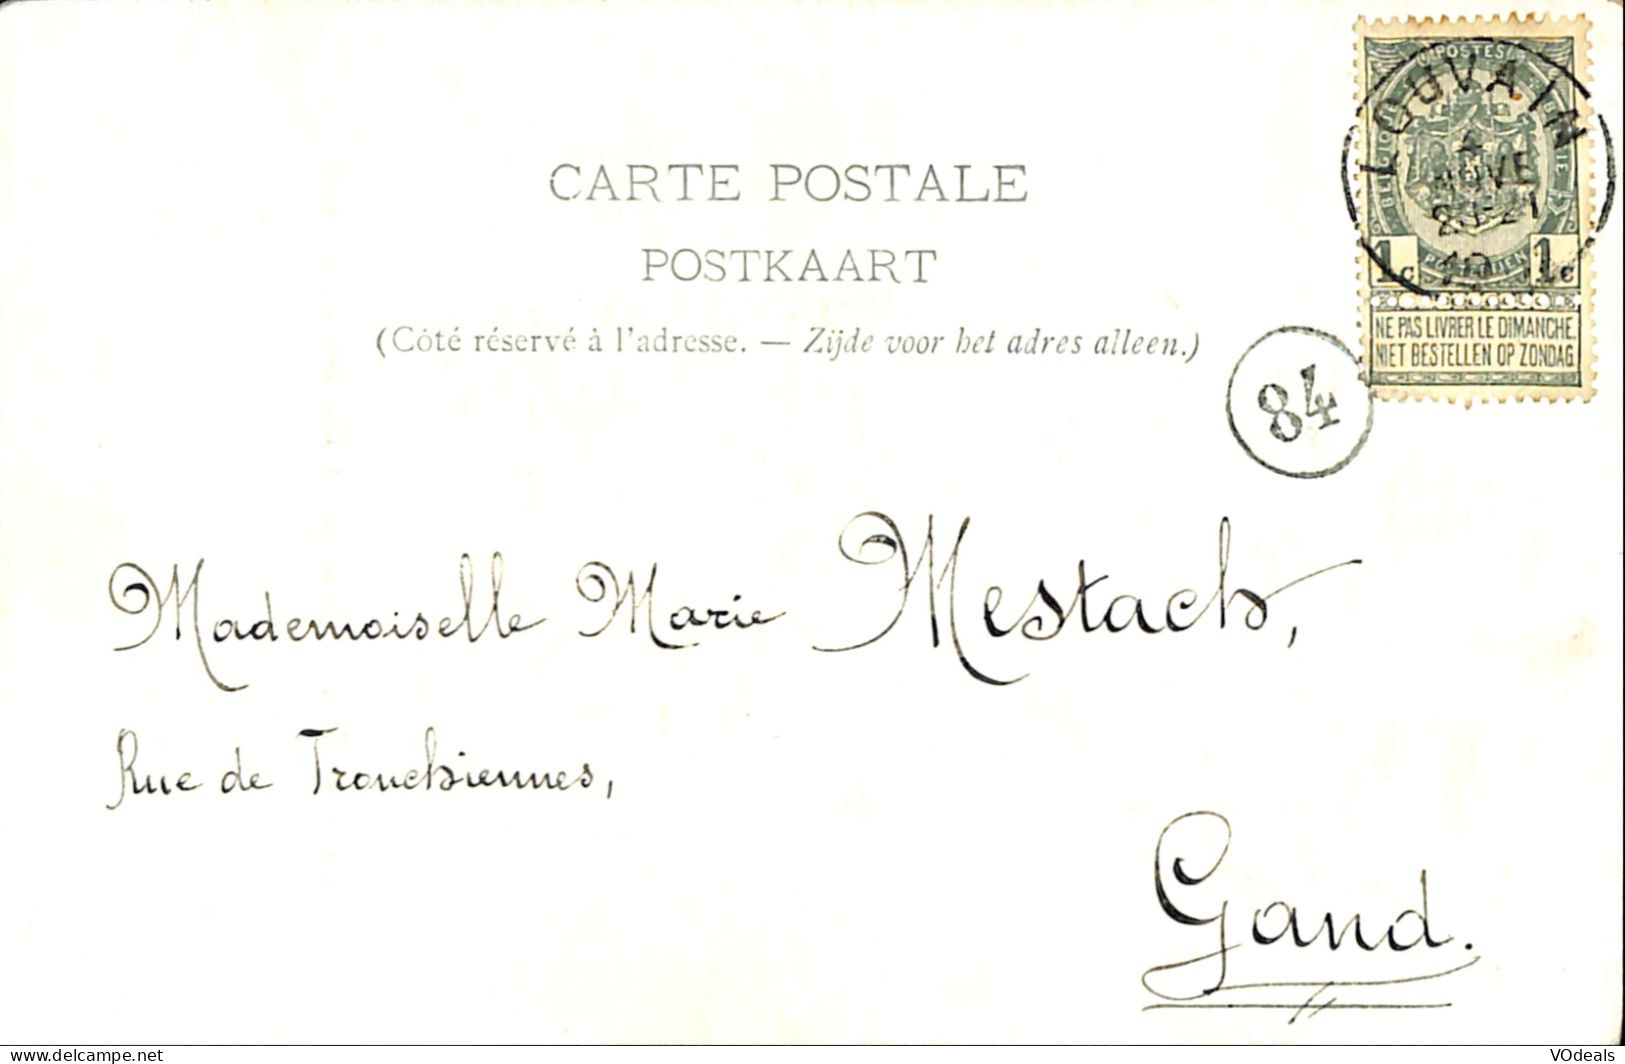 POSTES
BELGIQUE
BELGIE
LOUVAIN
4
NOVE
20-21
1c 1c
NE PAS LIVRER LE DIMANCHE.
NIET BESTELLEN OP ZONDAG
CARTE POSTALE
POSTKAART
(Côté réservé à l'adresse. — Zijde voor het adres alleen.)
84
Mademoiselle Marie Mestach,
Rue de Tronchiennes,
Gand.
delcampe.net
VOdeals